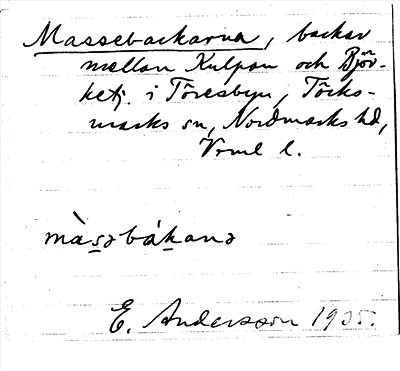 Massebackarna, backar
mellan Kulpan och Björ-
ketj. i Töresbyn, Töcks-
marks sn, Nordmarks hd,
Vrml l.
màs̲ə bák̲anə
E. Andersson 1935.